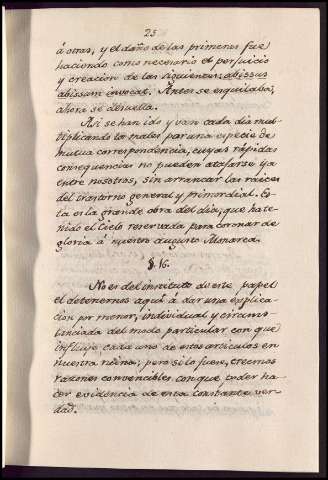 25
á otras, y el daño de las primeras fue
haciendo como necesario el perjuicio
y creacion de las siguientes: abissus
abissum invocat. Antes se esquilaba;
ahora se desuella.
Asi se han ido y van cada dia mul-
tiplicando los males por una especie de
mutua correspondencia, cuyas rápidas
consequencias no pueden atajarse ya
entre nosotros, sin arrancar las raices
del trastorno general y primordial. Es-
ta es la grande obra del dia, que ha te-
nido el Cielo reservada para coronar de
gloria á nuestro augusto Monarca.
§. 16.
No es del instituto de este papel
el detenernos aqui á dar una explica-
cion por menor, individual y circuns-
tanciada del modo particular con que
influye cada uno de estos articulos en
nuestra ruina; pero si lo fuese, creemos
razones convencibles con que poder ha-
cer evidencia de esta constante ver-
dad.